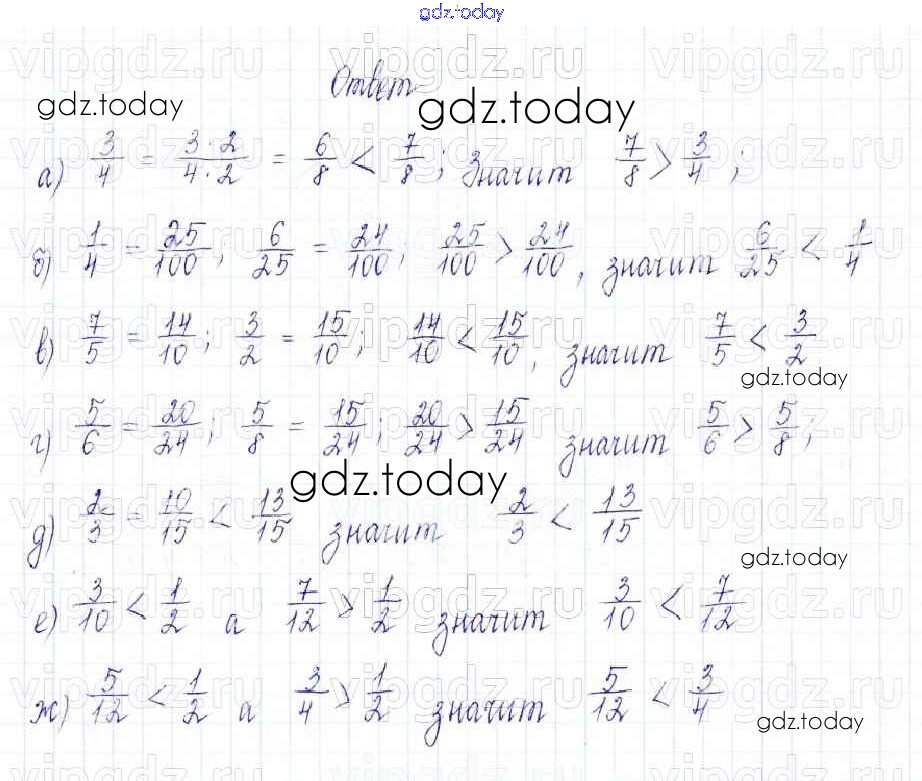 gdz.today
Ответ
gdz.today gdz.today
а) 3/4 = 3·2/4·2 = 6/8 < 7/8; Значит 7/8 > 3/4;
б) 1/4 = 25/100; 6/25 = 24/100; 25/100 > 24/100, значит 6/25 < 1/4
в) 7/5 = 14/10; 3/2 = 15/10; 14/10 < 15/10, значит 7/5 < 3/2
gdz.today
г) 5/6 = 20/24; 5/8 = 15/24; 20/24 > 15/24 значит 5/6 > 5/8;
gdz.today
д) 2/3 = 10/15 < 13/15 значит 2/3 < 13/15
gdz.today
е) 3/10 < 1/2 а 7/12 > 1/2 значит 3/10 < 7/12
ж) 5/12 < 1/2 а 3/4 > 1/2 значит 5/12 < 3/4
gdz.today
vipgdz.ru vipgdz.ru vipgdz.ru